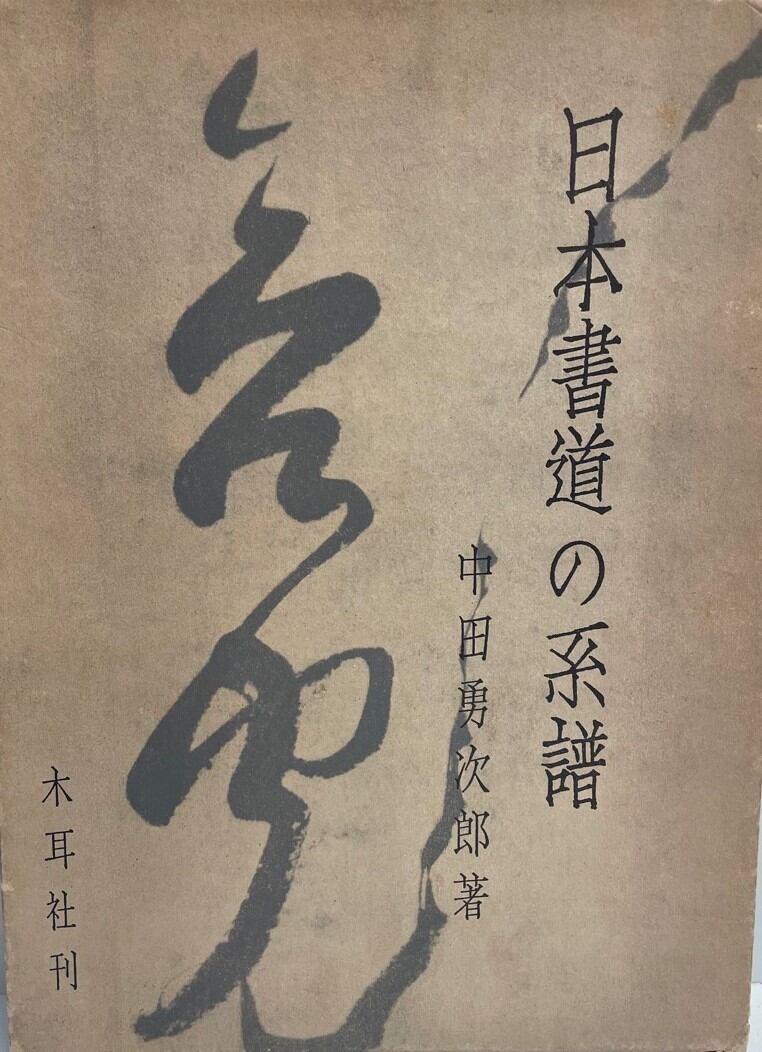 日本書道の系譜
中田勇次郎著
木耳社刊